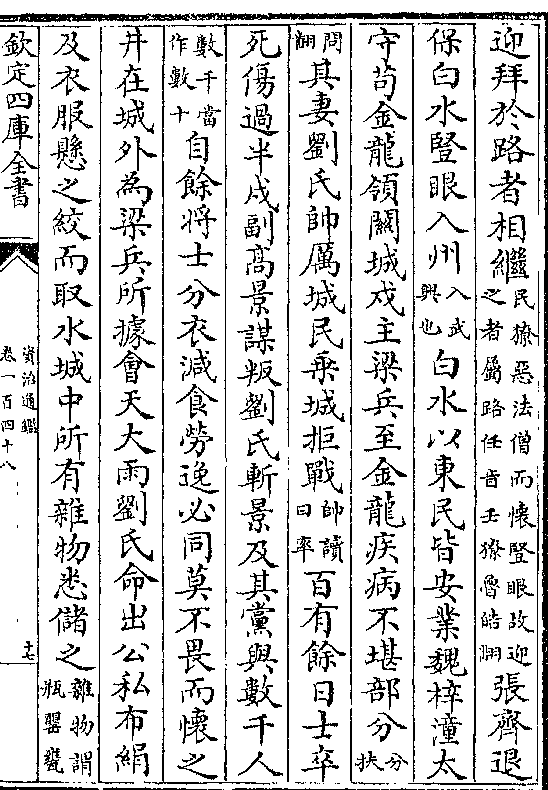 迎拜於路者相繼民獠惡法僧而懷豎眼故迎之者屬路任音壬獠魯皓翻張齊退
保白水豎眼入州入武興也白水以東民皆安業魏梓潼太
守苟金龍領關城戍主梁兵至金龍疾病不堪部分分扶
問翻其妻劉氏帥厲城民乘城拒戰帥讀曰率百有餘日士卒
死傷過半戍副高景謀叛劉氏斬景及其黨與數千人
數千當作數十自餘將士分衣減食勞逸必同莫不畏而懷之
井在城外為梁兵所據會天大雨劉氏命出公私布絹
及衣服懸之絞而取水城中所有雜物悉儲之雜物謂瓶罌甕
欽定四庫全書
資治通鑑
卷一百四十八
十七